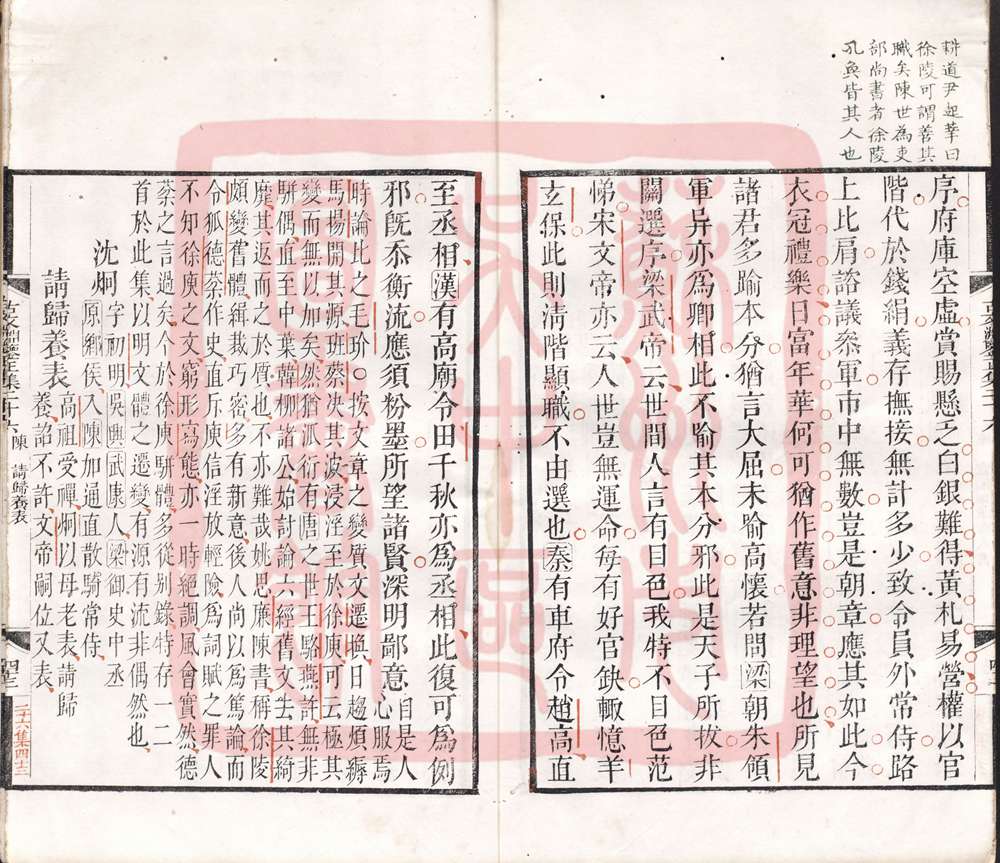 耕道尹起莘曰
徐陵可謂善其
職矣陳世為吏
部尚書者徐陵
孔奐皆其人也
序府庫空虛賞賜懸乏白銀難得黃札易營權以官
階代於錢絹義存撫接無計多少致令員外常侍路
上比肩諮議叅軍市中無數豈是朝章應其如此今
衣冠禮樂日富年華何可猶作舊意非理望也所見
諸君多踰本分猶言大屈未喻高懷若問梁朝朱領
軍异亦爲卿相此不喻其本分邪此是天子所拔非
關選序梁武帝云世間人言有目色我特不目色范
悌宋文帝亦云人世豈無運命每有好官缺輙憶羊
玄保此則淸階顯職不由選也秦有車府令趙高直
至丞相漢有高廟令田千秋亦爲丞相此復可爲例
邪旣忝衡流應須粉墨所望諸賢深明鄙意自是人心服焉
時論比之毛玠按文章之變質文遷喚日趨煩縟
馬揚開其源班蔡次其波浸淫至於徐庾可云極其
變而無以加矣然猶派衍有唐之世王駱燕許無非
駢偶直至中葉韓柳諸公始討論六經舊文去其綺
靡其返而之於質也不亦難哉姚思廉陳書稱徐陵
頗變舊體緝裁巧密多有新意後人尚以爲篤論而
令狐德棻作史直斥庾信淫放輕險爲詞賦之罪人
不知徐庾之文窮形寫態亦一時絕調風會實然德
棻之言過矣今於徐庾駢體多從別錄特存一二
首於此集以明文體之遷變有源有流非偶然也
沈炯字初明吳興武康人梁御史中丞
原鄉侯入陳加通直散騎常侍
請歸養表高祖受禪炯以母老表請歸
養詔不許文帝嗣位又表
古文淵鑒正集二十六 陳 請歸養表
四十三
二十六集四十三